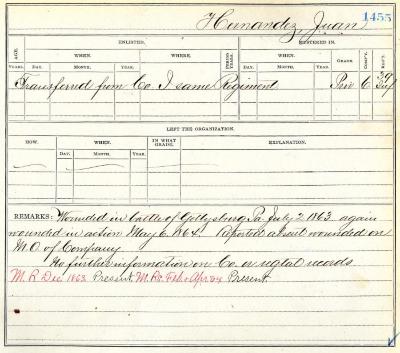 1455
Hernandez, Juan
AGE.
ENLISTED.
WHEN.
WHERE.
PERIOD YEARS.
MUSTERED IN.
WHEN.
GRADE.
COMP'Y.
REG'T.
DAY. MONTH. YEAR.
DAY. MONTH. YEAR.
Transferred from Co. I same Regiment Priv C 39 Inf
LEFT THE ORGANIZATION.
HOW.
WHEN.
IN WHAT GRADE.
EXPLANATION.
DAY. MONTH. YEAR.
REMARKS: Wounded in battle of Gettysburg Pa July 2 1863, again
wounded in action May 6, 1864. Reported absent wounded on
M.O. of Company
No further information on Co. or regtal records
M.R. Dec. 1863 Present. M.R's Feb & Apr 64 Present.